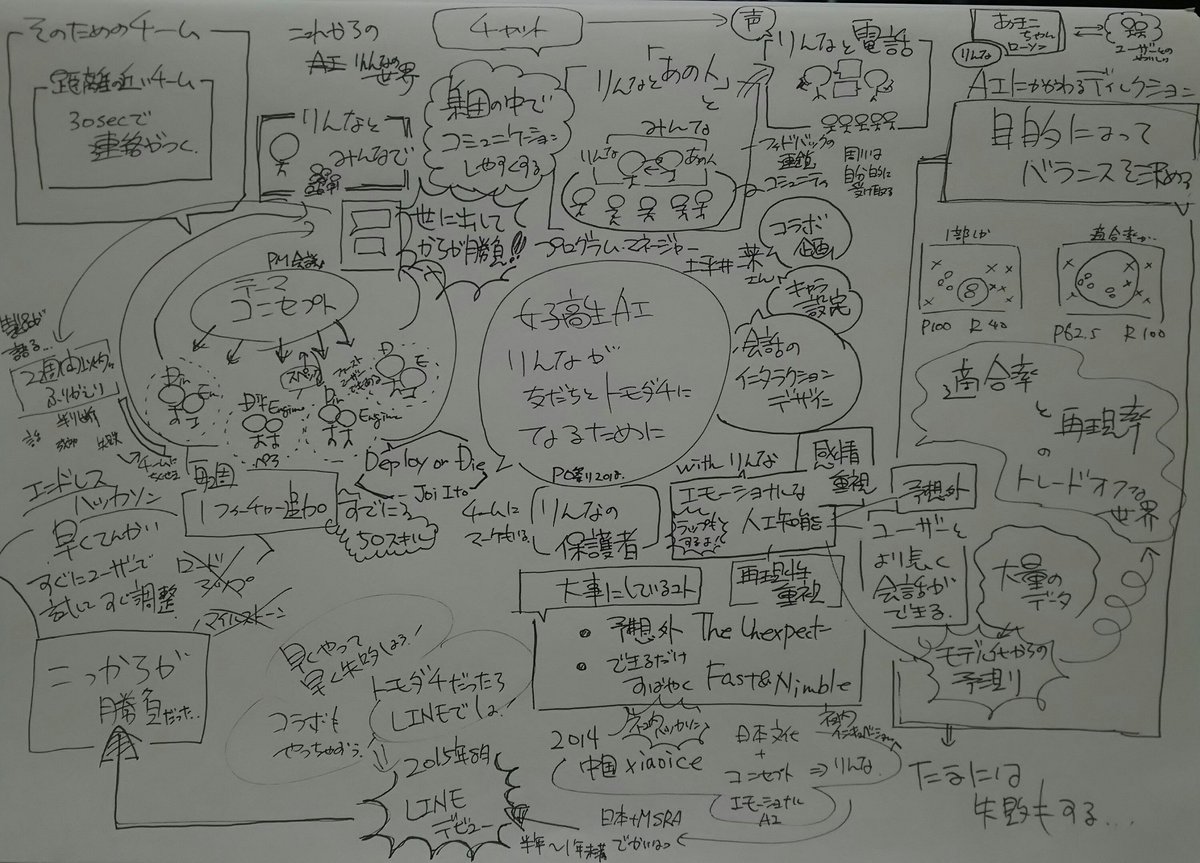 そのためのチーム
距離の近いチーム
30secで
連絡がつく
これからの
AI りんなの
世界
りんなと
みんなで
チャット
声
集団の中で
コミュニケーション
しやすくする
りんなと「あの人」
と
みんな
りんな
あの人
りんなと電話
フィードバックの
連鎖
コミュニティ
周りは
自分的に
受け取る
あきこ
ちゃん
ローソン
りんな
ユーザーとの
AIにかかわるディレクション
目的によって
バランスを求める
1部しか
P100 R40
適合率が
P62.5 R100
適合率
と
再現率
の
トレードオフな
世界
世に出して
からが勝負!!
PM会議
テーマ
コンセプト
スペック
Dir
En
Dir Engine
Dir
Engine
D
E
2週間以内
ふりかえり
判断
失敗
エンドレス
ハッカソン
毎週
1フィーチャー追加
すでに
50スキル
Deploy or Die
Joi Ito
プログラム・マネージャー
コラボ
企画
キャラ
設定
会話の
インタラクション
デザイン
女子高生AI
りんなが
友だちとトモダチに
なるために
チームに
マーケもいる
りんなの
保護者
with りんな
エモーショナルな
人工知能
ラップも
するよ!
感情
重視
再現性
重視
予想外
ユーザーと
より長く
会話が
できる
大量の
データ
モデル化からの
予測
早くてんかい
すぐにユーザーで
試してすぐ調整
ロード
マップ
マイルストーン
こっからが
勝負だった..
早くやって
早く失敗しよう!
トモダチだったら
LINEでしょ
コラボも
やっちゃおう
2015年8月
LINE
デビュー
大事にしているコト
・予想外 The Unexpect
・できるだけ
すばやく Fast&Nimble
社内ハッカソン
2014
中国 xiaoice
日本文化
+
コンセプト ⇒ りんな
エモーショナル
AI
社内
インキュベーション
日本+MSRA
半年〜1年未満でかいはつ
たまには
失敗もする...